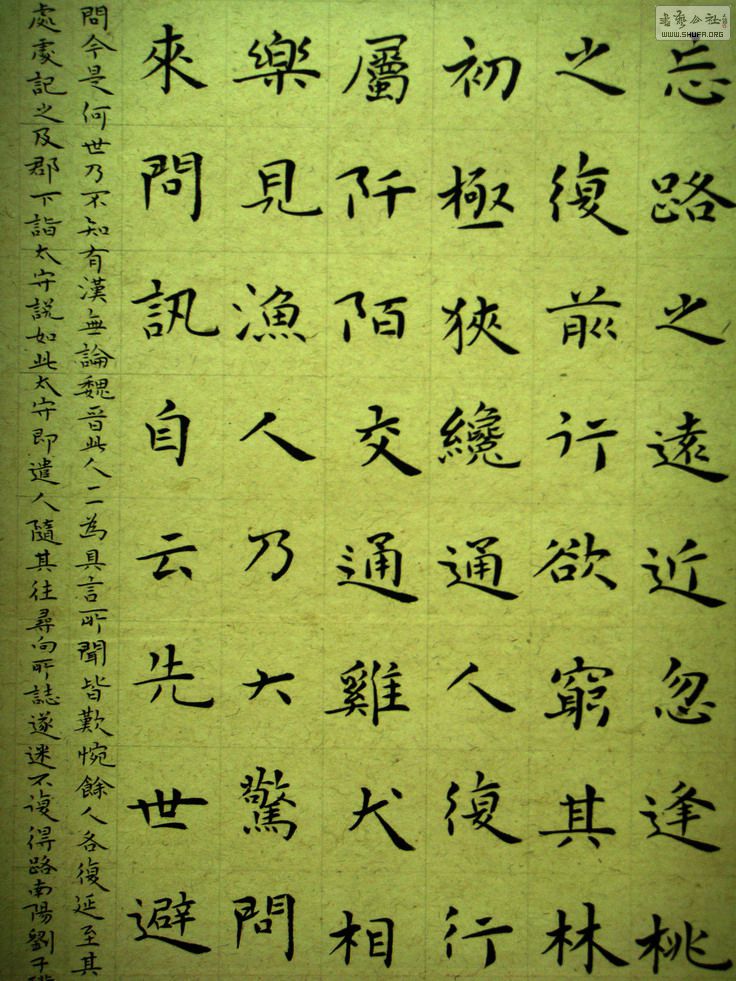 忘路之遠近忽逢桃
之復前行欲窮其林
初極狹纔通人復行
屬阡陌交通雞犬相
樂見漁人乃大驚問
來問訊自云先世避
問今是何世乃不知有漢無論魏晉此人一二為具言所聞皆歎惋餘人各復延至其
處處記之及郡下詣太守說如此太守即遣人隨其往尋向所誌遂迷不復得路南陽劉子
書藝公社
WWW.SHUFA.ORG